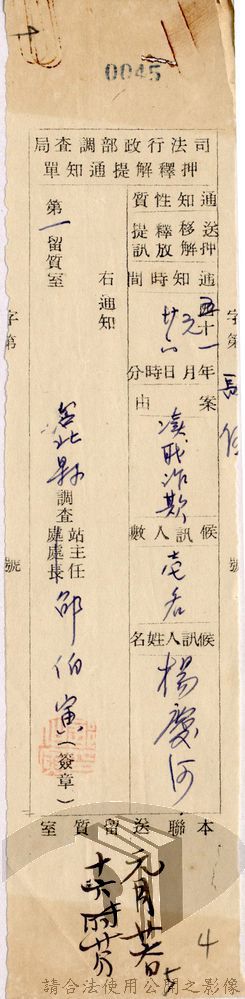 0045
司法行政部調查局
押釋解提通知單
通知性質
送押 移解 釋放 提訊
通知時間
五十一年元月廿六日時分
案由
瀆職詐欺
候訊人數
壱名
候訊人姓名
楊慶河
右通知
第一留質室
台北縣調查站主任
處處長
邵伯寅(簽章)
本聯送留質室
字第
號
字第
號
4
請合法使用公開之影像